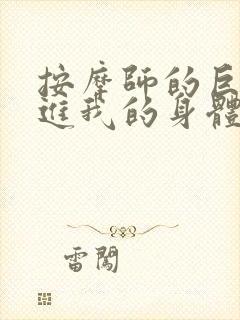 按摩師的巨
進我的身體
雷闖